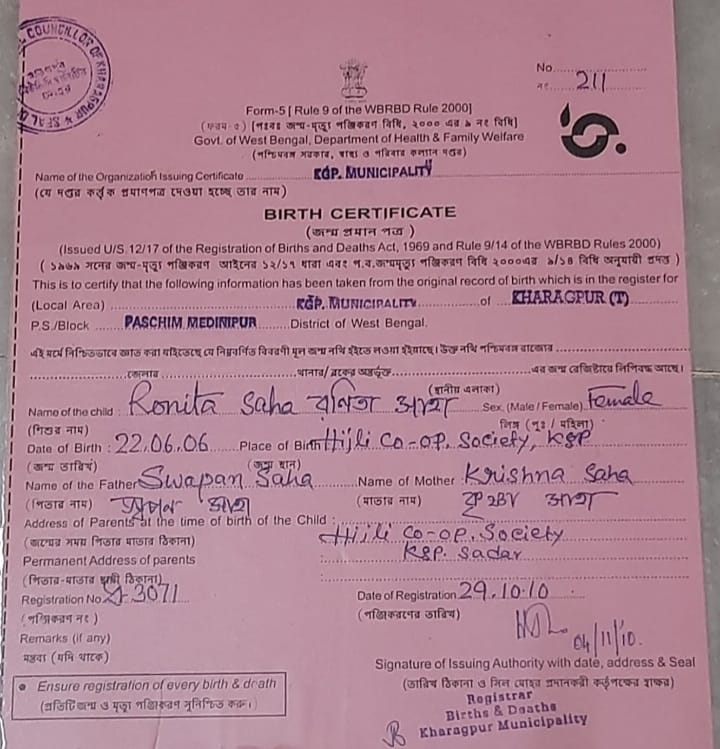 COUNCILLOR OF KHARAGPUR
No.
নং 211
Form-5 [ Rule 9 of the WBRBD Rule 2000]
(ফরম-৫) [পঃবঃ জন্ম-মৃত্যু পঞ্জিকরণ বিধি, ২০০০ এর ৯ নং বিধি]
Govt. of West Bengal, Department of Health & Family Welfare
(পশ্চিমবঙ্গ সরকার, স্বাস্থ্য ও পরিবার কল্যান দপ্তর)
Name of the Organization Issuing Certificate KGP. MUNICIPALITY
(যে দপ্তর কর্তৃক প্রমাণপত্র দেওয়া হচ্ছে তার নাম)
BIRTH CERTIFICATE
(জন্ম প্রমান পত্র)
(Issued U/S.12/17 of the Registration of Births and Deaths Act, 1969 and Rule 9/14 of the WBRBD Rules 2000)
( ১৯৬৯ সনের জন্ম-মৃত্যু পঞ্জিকরণ আইনের ১২/১৭ ধারা এবং প.ব.জন্মমৃত্যু পঞ্জিকরণ বিধি ২০০০এর ৯/১৪ বিধি অনুযায়ী প্রদত্ত )
This is to certify that the following information has been taken from the original record of birth which is in the register for
(Local Area) KGP. MUNICIPALITY of KHARAGPUR (T)
P.S./Block PASCHIM MEDINIPUR District of West Bengal.
এই মর্মে নিশ্চিতভাবে জ্ঞাত করা যাইতেছে যে নিম্নবর্ণিত বিবরণী মূল জন্ম নথি হইতে লওয়া হইয়াছে। উক্ত নথি পশ্চিমবঙ্গ রাজ্যের
জেলার থানার/ব্লকের অন্তর্ভূক্ত এর জন্ম রেজিষ্টারে লিপিবদ্ধ আছে।
(স্থানীয় এলাকা)
Name of the child : Ronita Saha রনিতা সাহা Sex. (Male / Female) Female
(শিশুর নাম) লিঙ্গ (পুঃ / মহিলা)
Date of Birth : 22.06.06 Place of Birth Hijli Co-op. Society, KGP
(জন্ম তারিখ) (জন্ম স্থান)
Name of the Father Swapan Saha Name of Mother Krishna Saha
(পিতার নাম) স্বপন সাহা (মাতার নাম) কৃষ্ণা সাহা
Address of Parents at the time of birth of the Child :
(জন্মের সময় পিতার মাতার ঠিকানা) Hijli Co-op. Society
Permanent Address of parents KGP. Sadar
(পিতার-মাতার স্থায়ী ঠিকানা)
Registration No. 3071 Date of Registration 29.10.10
(পঞ্জিকরণ নং) (পঞ্জিকরণের তারিখ)
Remarks (if any) 04/11/10.
মন্তব্য (যদি থাকে)
Signature of Issuing Authority with date, address & Seal
(তারিখ ঠিকানা ও সিল মোহর প্রদানকারী কর্তৃপক্ষের স্বাক্ষর)
• Ensure registration of every birth & death
(প্রতিটি জন্ম ও মৃত্যু পঞ্জিকরণ সুনিশ্চিত করুন।)
Registrar
Births & Deaths
Kharagpur Municipality